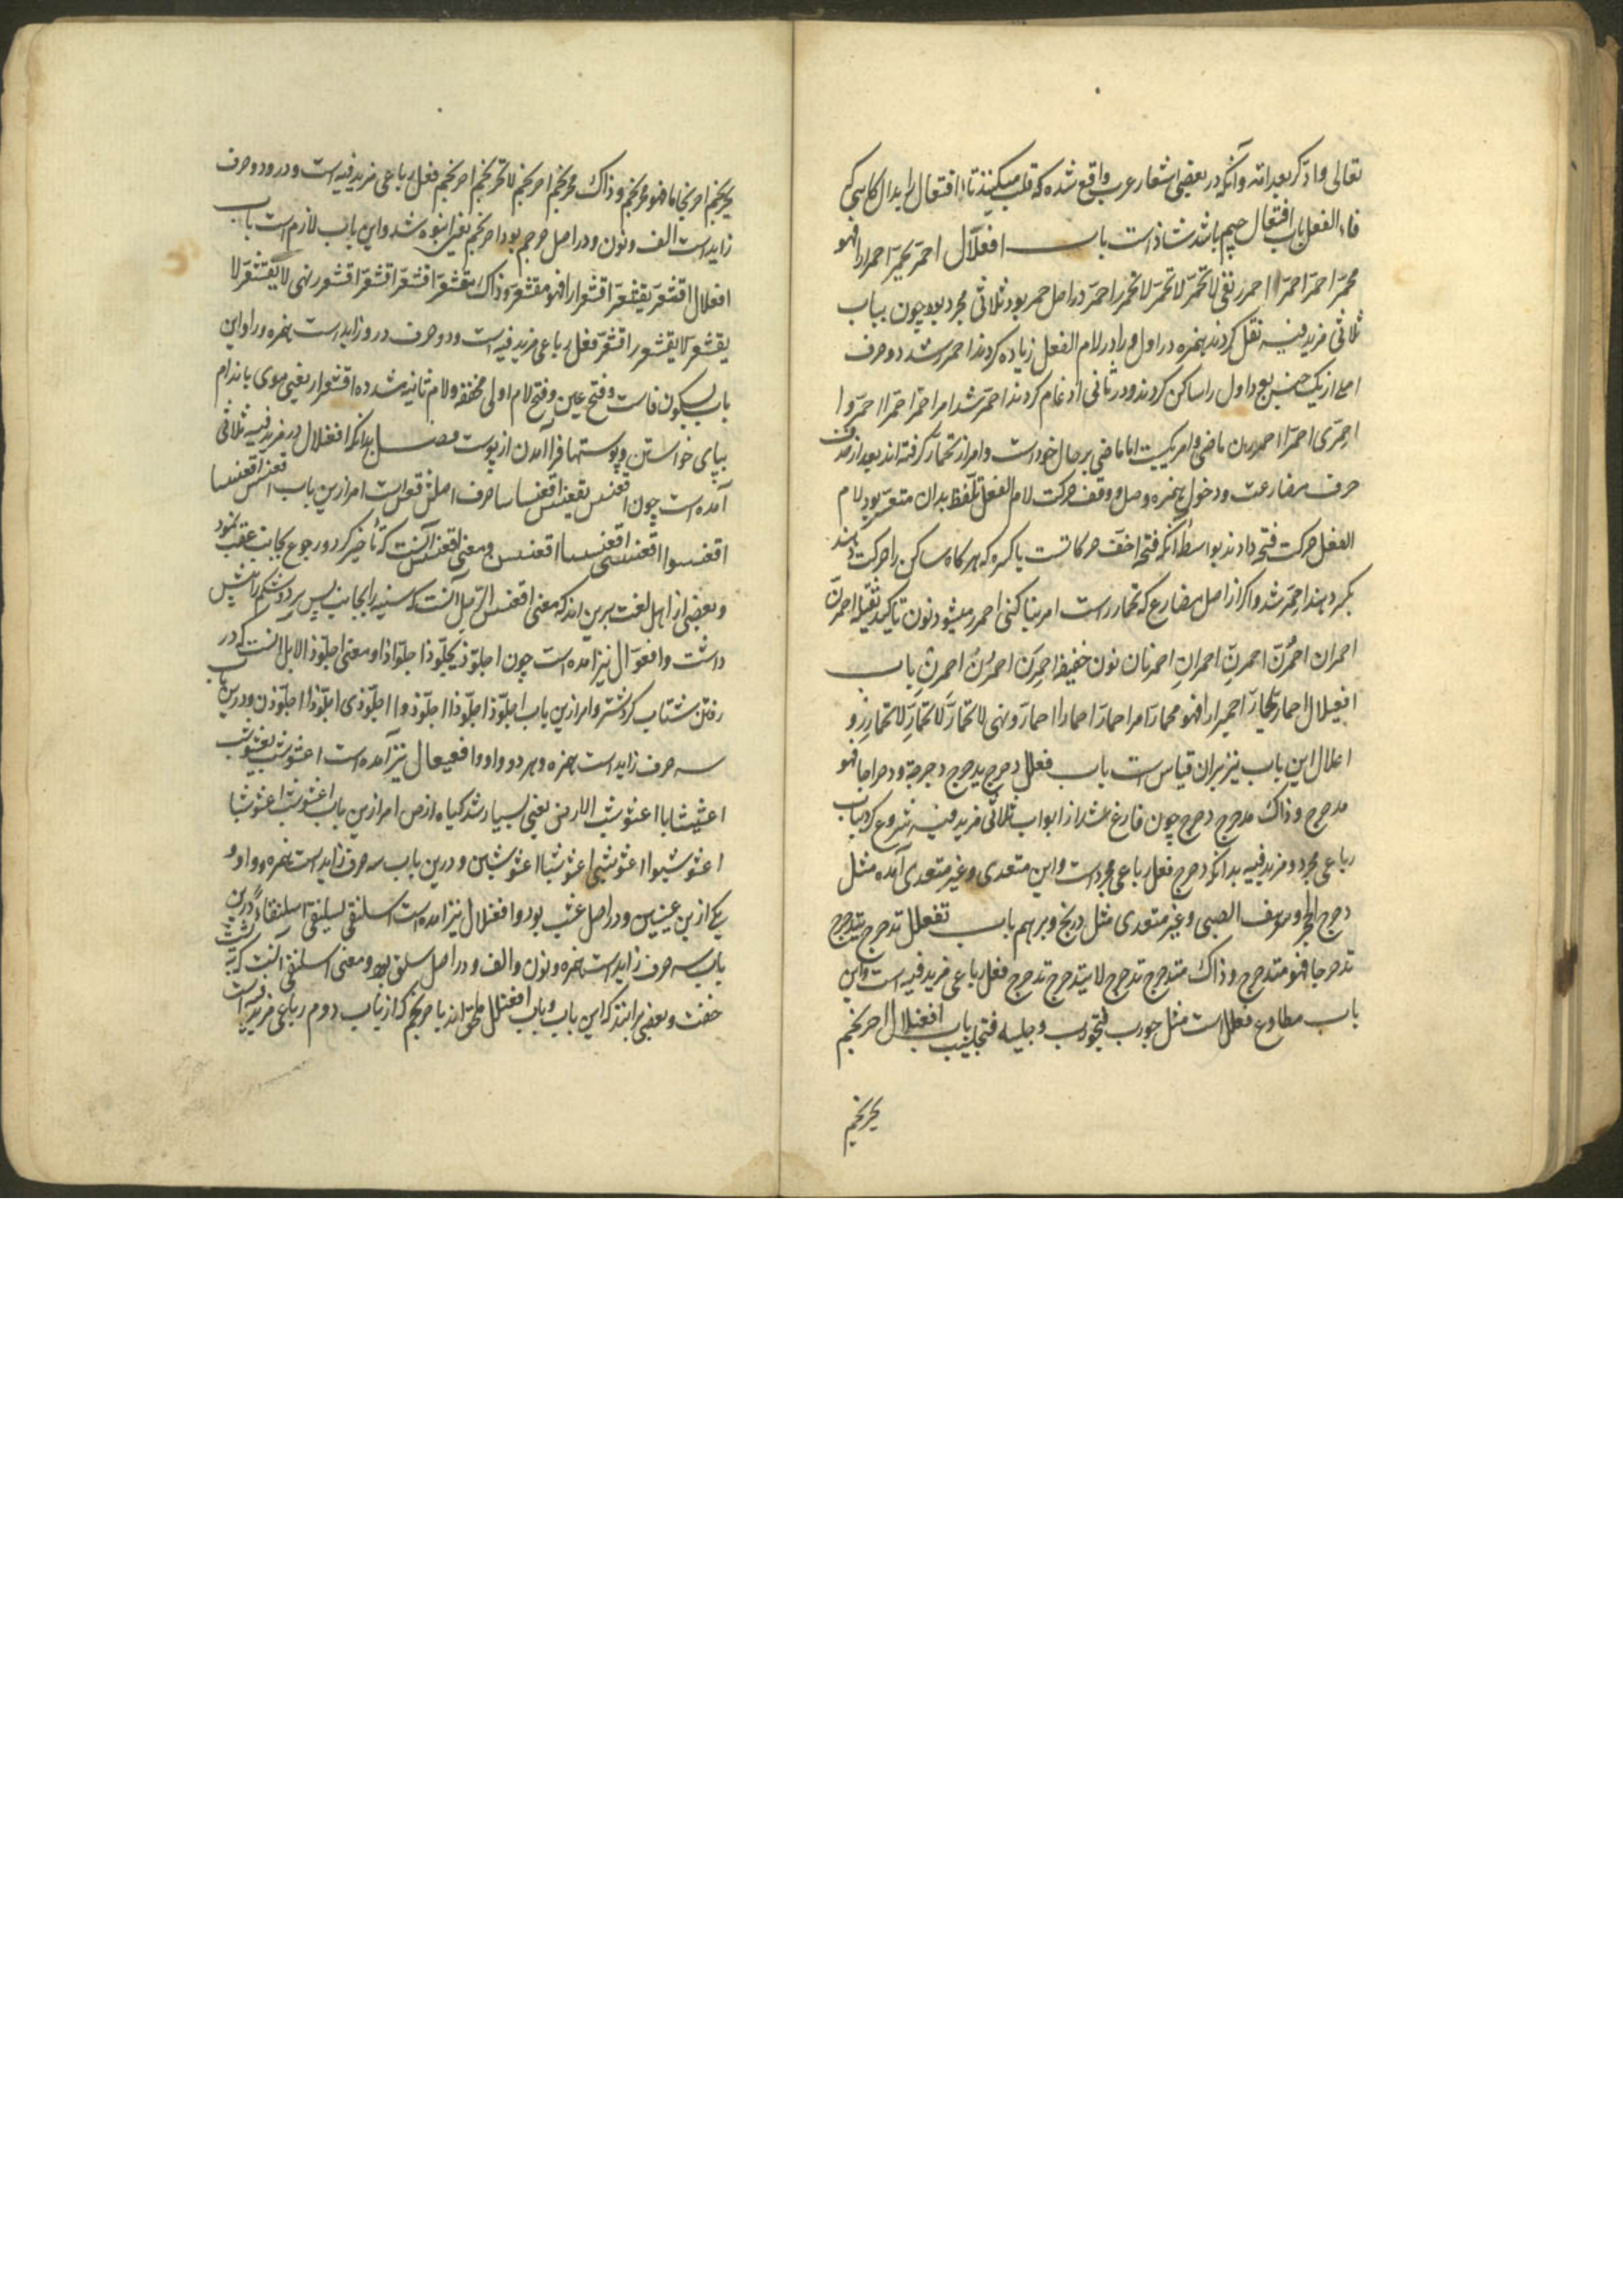 تعالی وادّکر بعد امّه و آنکه در بعضی اشعار عرب واقع شده که قلب میکنند تاء افتعال را بدال کاهی که
فاء الفعل باب افتعال جیم باشد شاذ است باب افعلّال احمرّ یحمرّ احمرارا فهو
محمرّ احمرّ احمرّا احمرر نفی لا تحمرّ لا تحمرّ لا تحمرر احمرّ در اصل حمر بود ثلاثی مجرد بود چون بباب
ثلاثی مزید فیه نقل کردند همزه در اول و را در لام الفعل زیاده کردند احمرر شد دو حرف
اصلی از یک جنس بود اول را ساکن کردند و در ثانی ادغام کردند احمرّ شد امر احمرّ احمرّا احمرّوا
احمرّی احمرّا احمررن ماضی و امر یکیست اما ماضی بر حال خود است و امر از تحمارّ کرفته اند بعد از حذف
حرف مضارعت و دخول همزه وصل و وقف حرکت لام الفعل تلفظ بدان متعسر بود لام
الفعل حرکت فتحه دادند بواسطه آنکه فتحه اخفّ حرکاتست یا کسره که هرکاه ساکن را حرکت دهند
بکسر دهند احمرّ شد و اکر از اصل مضارع که تحمارر است امر بنا کنی احمرر میشود نون تاکید ثقیله احمرنّ
احمران احمرنّ احمرنّ احمرانِ احمرنان نون خفیفه احمرن احمرن احمرن باب
افعیلال احمارّ یحمارّ احمیرارا فهو محمارّ امر احمارّ احمارا احمارّو نهی لا تحمارّ لا تحمارّ لا تحمارر و
اعلال این باب نیز بران قیاس است باب فعلل دحرج یدحرج دحرجة و دحراجا فهو
مدحرج و ذاک مدحرج دحرج چون فارغ شد از ابواب ثلاثی مزید فیه شروع کرد بباب
رباعی مجرد و مزید فیه بدانکه دحرج فعل رباعی مجرد است و این متعدی و غیر متعدی آمده مثل
دحرج الحجر و سرهف الصبی و غیر متعدی مثل دربخ و برهم باب تفعلل تدحرج یتدحرج
تدحرجا فهو متدحرج و ذاک متدحرج تدحرج لا یتدحرج تدحرج فعل رباعی مزید فیه است و این
باب مطاوع فعلل است مثل جورب فتجورب و جلببه فتجلبب باب افعنلال احرنجم
یحرنجم
یحرنجم احرنجاما فهو محرنجم و ذاک محرنجم احرنجم لا تحرنجم احرنجم فعل رباعی مزید فیه است و درو دو حرف
زاید است الف و نون و در اصل حرجم بود احرنجم یعنی انبوه شد و این باب لازم است باب
افعلال اقشعرّ یقشعرّ اقشعرارا فهو مقشعرّ و ذاک مقشعرّ اقشعرّ اقشعرّ اقشعرر نهی لا یقشعرّ لا
یقشعرّ لا یقشعرر اقشعرّ فعل رباعی مزید فیه است و دو حرف درو زاید است همزه و را و این
باب بسکون فاست و فتح عین و فتح لام اولی مخففه و لام ثانیه مشدده اقشعرار یعنی موی باندام
بپای خواستن و پوستها فرا آمدن از پوست فصل بدانکه افعنلال در مزید فیه ثلاثی
آمده است چون اقعنسس یقعنسس اقعنساسا حرف اصلش قعس است امر ازین باب اقعنسس اقعنسسا
اقعنسسوا اقعنسسی اقعنسسا اقعنسسن و معنی اقعنسس آنست که تأخیر کرد و رجوع بجانب عقب نمود
و بعضی از اهل لغت برین اند که معنی اقعنسس الرّجل آنست که سینه را بجانب پس برد و شکم را پیش
داشت و افعوّال نیز آمده است چون اجلوّذ یجلوّذ اجلوّاذا و معنی اجلوّذ الابل آنست که در
رفتن شتاب کرد شتر و امر ازین باب اجلوّذ اجلوّذا اجلوّذوا اجلوّذی اجلوّذا اجلوّذن و درین باب
سه حرف زاید است همزه و هر دو واو و افعیعال نیز آمده است اعشوشب یعشوشب
اعشیشابا اعشوشب الارض یعنی بسیار شد کیاه ارض امر ازین باب اعشوشب اعشوشبا
اعشوشبوا اعشوشبی اعشوشبا اعشوشبن و درین باب سه حرف زاید است همزه و واو و
یکی ازین عینین و در اصل عشب بود و افعنلال نیز آمده است اسلنقی یسلنقی اسلنقاء و درین
باب سه حرف زاید است همزه و نون و الف و در اصل سلق بود و معنی اسلنقی آنست که بر پشت
خفت و بعضی برانند که این باب و باب افعنلل ملحق اند با حرنجم که از باب دوم رباعی مزید فیه است